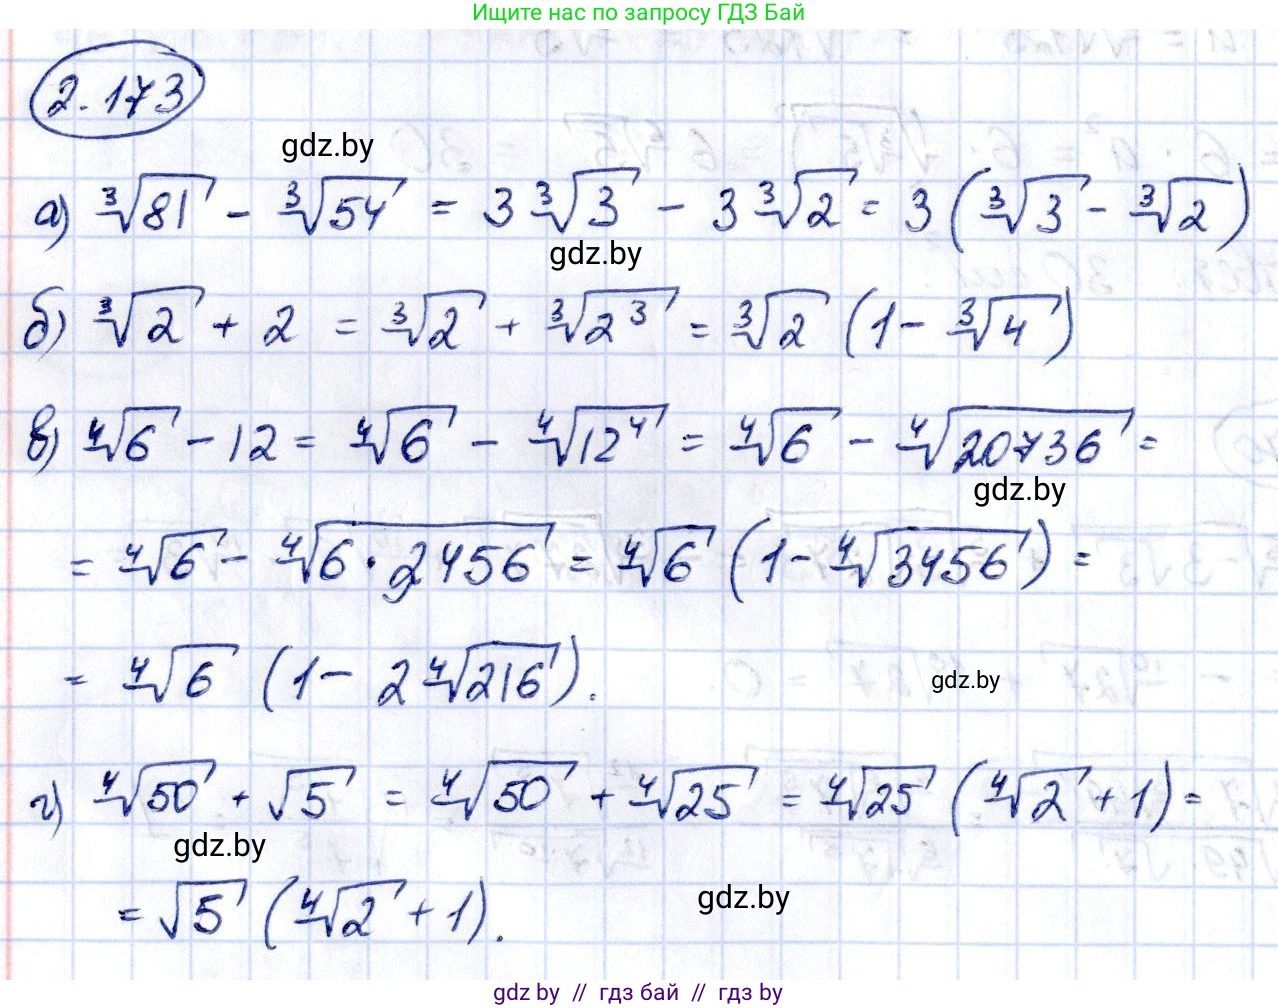 Ищите нас по запросу ГДЗ Бай
2.173
gdz.by
а) ∛81 - ∛54 = 3∛3 - 3∛2 = 3(∛3 - ∛2)
gdz.by
б) ∛2 + 2 = ∛2 + ∛2³ = ∛2 (1 - ∛4)
в) ∜6 - 12 = ∜6 - ∜12⁴ = ∜6 - ∜20736 =
gdz.by
= ∜6 - ∜6·2456 = ∜6 (1 - ∜3456) =
= ∜6 (1 - 2∜216).
gdz.by
г) ∜50 + √5 = ∜50 + ∜25 = ∜25 (∜2 + 1) =
gdz.by
= √5 (∜2 + 1).
gdz.by
gdz by // гдз бай // gdz by